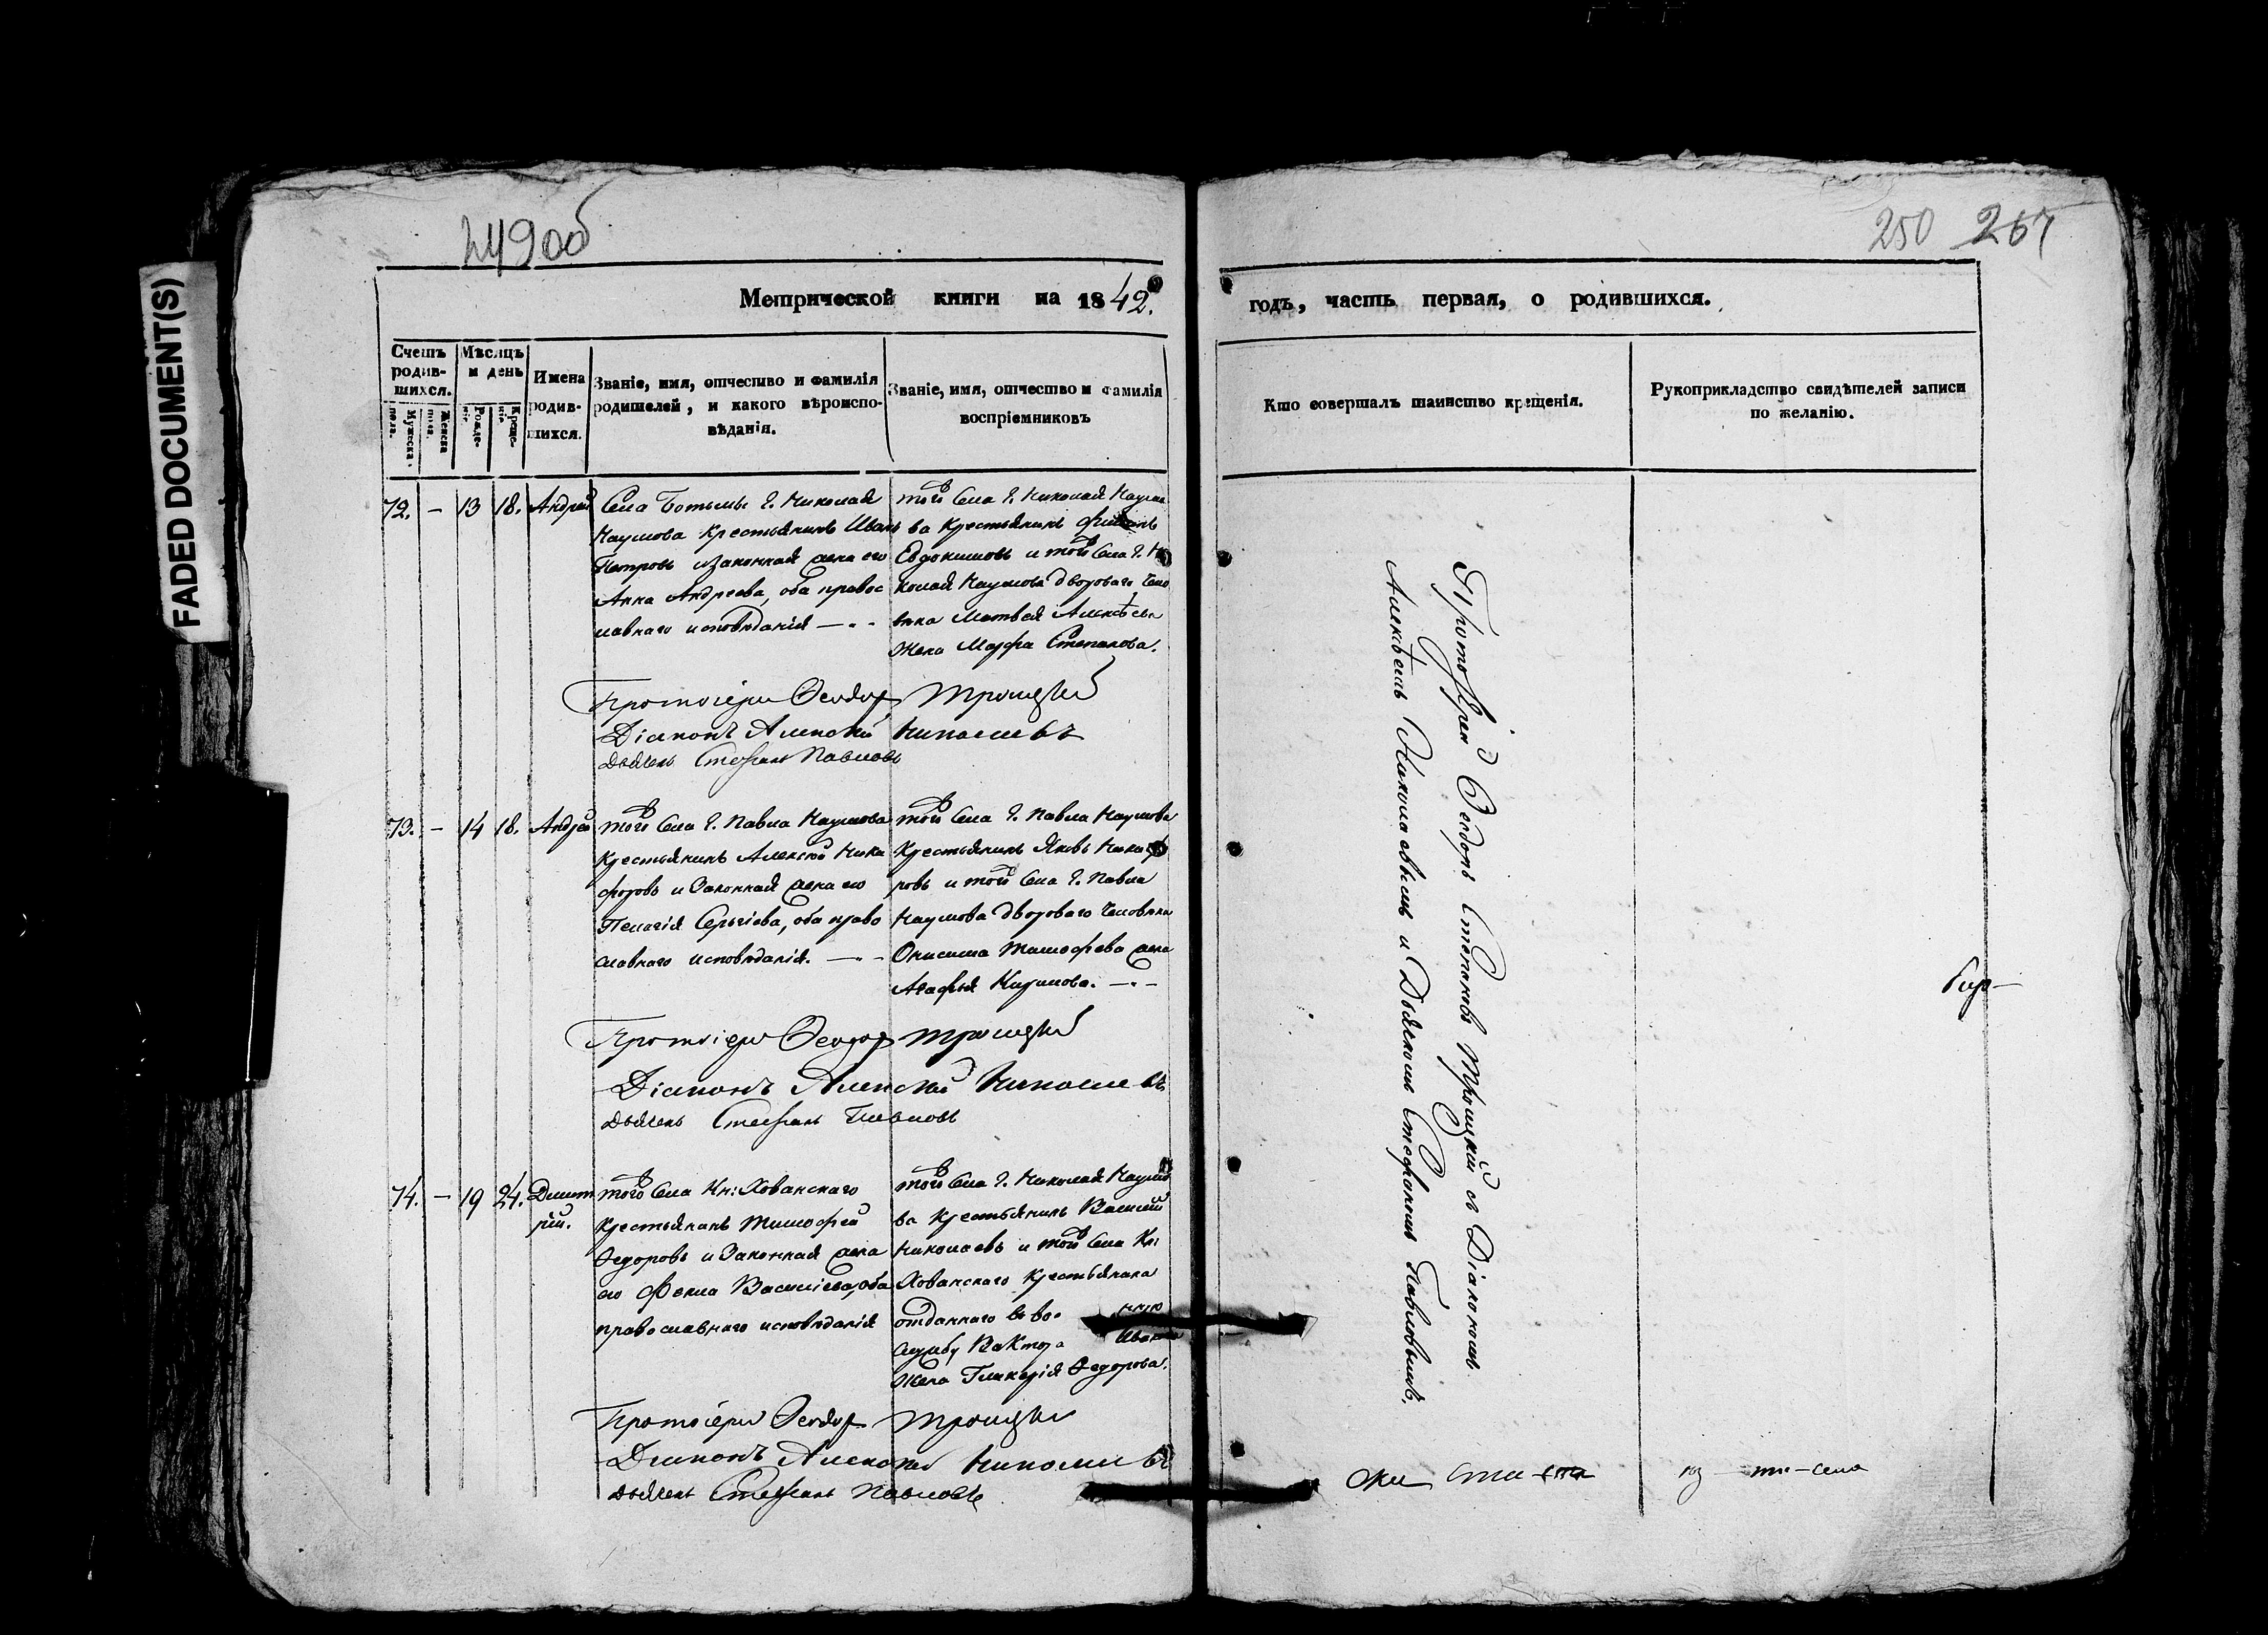 FADED DOCUMENT(S)
249об
250 267
Метрической книги на 1842.
годъ, часть первая, о родившихся.
Счетъ родив-шихся.
Мужеска пола.
Женска пола.
Мѣсяцъ и день
Рожде-нія
Креще-нія
Имена родив-шихся.
Званіе, имя, отчество и фамилія
родителей, и какого вѣроиспо-
вѣданія.
Званіе, имя, отчество и фамилія
воспріемниковъ
Кто совершалъ таинство крещенія.
Рукоприкладство свидѣтелей записи
по желанію.
72. — 13 18. Андрей
Села Ботьмы Г. Николая
Наумова крестьянинъ Иванъ
Петровъ и законная жена его
Анна Андреева, оба правос
лавнаго исповѣданія —
того Села Г. Николая Наумо
ва крестьянинъ
Евдокимовъ и того Села Г. Ни
колая Наумова двороваго чело
вѣка Матвея Алексѣева
жена Марфа Степанова.
Протоіерей Феодоръ Троицкій
Діаконъ Алексей Николаевъ
Дьячекъ Стефанъ Павловъ
73. — 14 18. Андрей
того Села Г. Павла Наумова
крестьянинъ Алексей Ники
форовъ и законная жена его
Пелагія Сергіева, оба право
славнаго исповѣданія. —
того Села Г. Павла Наумова
крестьянинъ Яковъ Никифо
ровъ и того Села Г. Павла
Наумова двороваго человѣка
Онисима Тимофеева жена
Агафья Кирилова. —
Протоіерей Феодоръ Троицкій
Діаконъ Алексей Николаевъ
Дьячекъ Стефанъ Павловъ
74. — 19 24. Димит
рій.
того Села Кн: Хованскаго
крестьянинъ Тимофей
Федоровъ и законная жена
его Фекла Василіева, оба
православнаго исповѣданія
того Села Г. Николая Наумо
ва крестьянинъ Василій
Николаевъ и того Села Кн:
Хованскаго крестьянина
отданнаго въ во
службу Виктора Ивано
жена Гликерія Федорова.
Протоіерей Феодоръ Троицкій
Діаконъ Алексей Николаевъ
Дьячекъ Стефанъ Павловъ
Протоіерей Феодоръ Степановъ Троицкій съ Діакономъ
Алексѣемъ Николаевымъ и Дьячкомъ Стефаномъ Павловымъ.